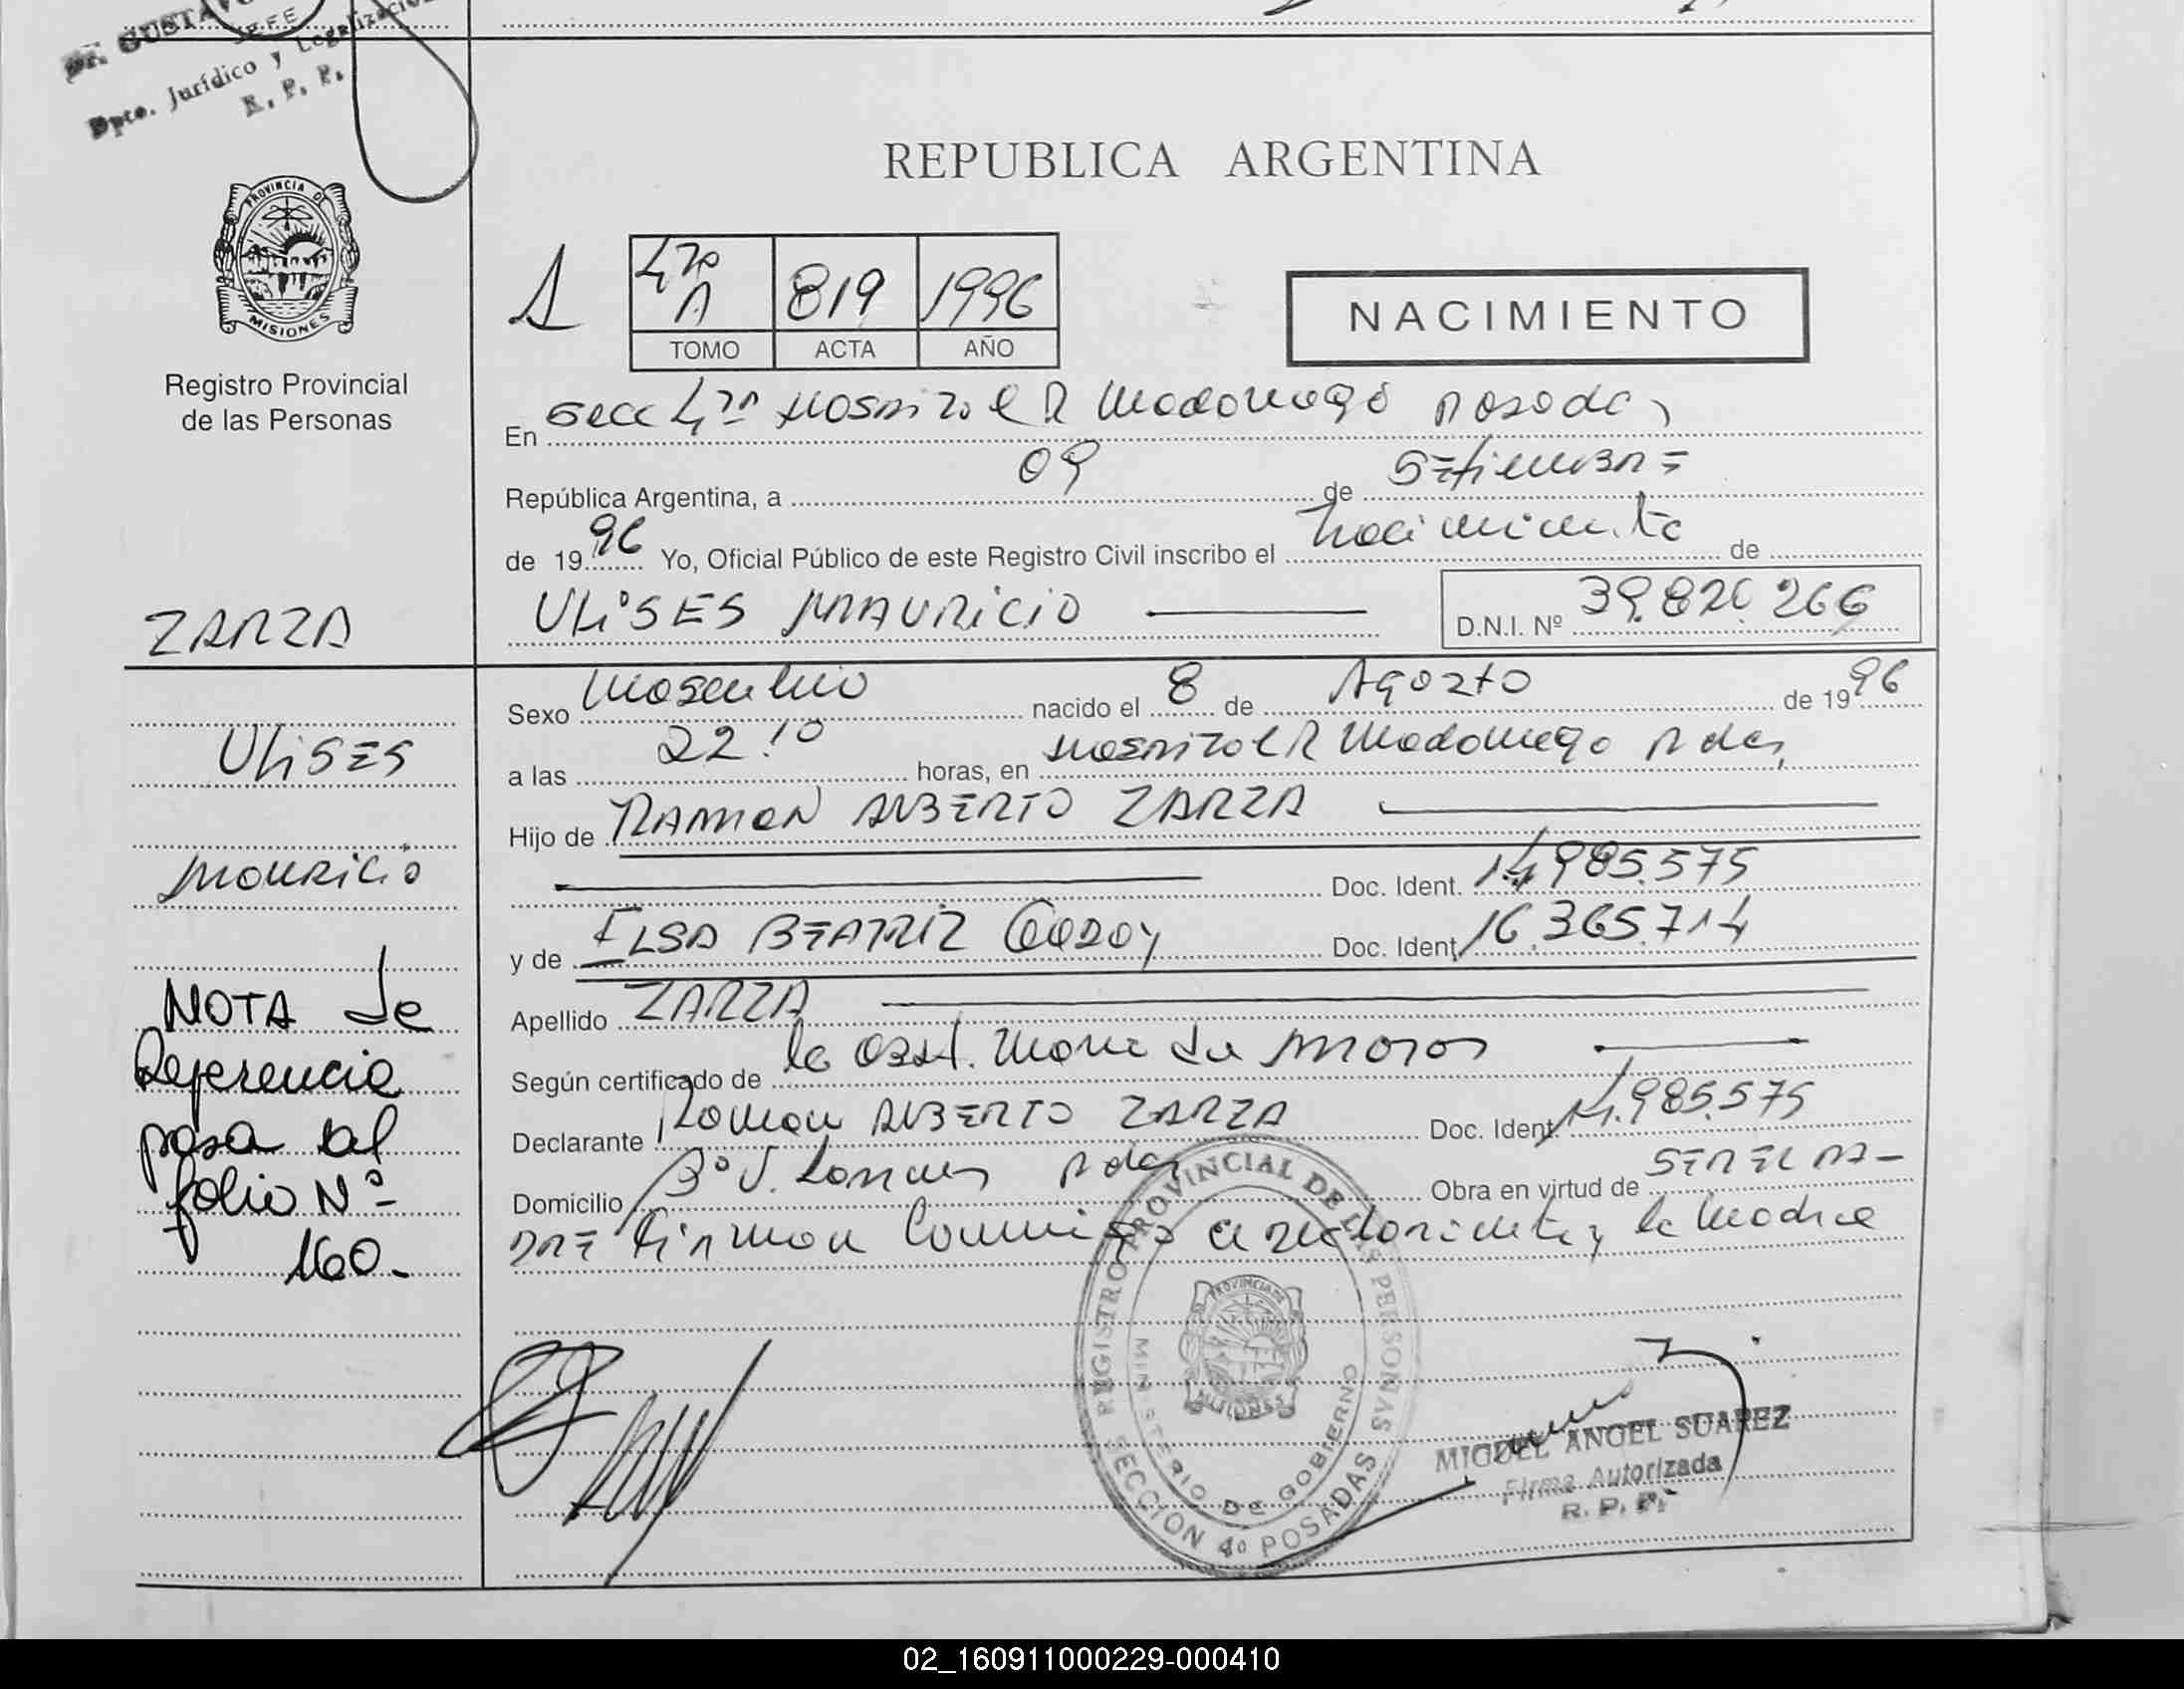 Dr. GUSTAVO
JEFE
Dpto. Jurídico y Legalizaciones
R. P. P.
PROVINCIA DE
MISIONES
Registro Provincial
de las Personas
REPUBLICA ARGENTINA
1
4ta A 819 1996
TOMO ACTA AÑO
NACIMIENTO
En Secc 4ta Hospital R Madariaga Posadas
República Argentina, a 09 de SEtiEMBRE
de 1996 Yo, Oficial Público de este Registro Civil inscribo el nacimiento de
ULiSES MAURiCiO
D.N.I. Nº 39.820.266
Sexo Masculino nacido el 8 de Agosto de 1996
a las 22.10 horas, en Hospital R Madariaga Pdas,
Hijo de RAMON ALBERTO ZARZA
Doc. Ident. 14.985.575
y de ELSA BEATRIZ GODOY Doc. Ident. 16.365.714
Apellido ZARZA
Según certificado de la Obst.
Declarante Ramon ALBERTO ZARZA Doc. Ident. 14.985.575
Domicilio Bº Pdas Obra en virtud de SER EL PA-
DRE Firman Conmigo el declarante y la Madre
ZARZA
ULiSES
MAURiCiO
NOTA de
Referencia
pasa al
folio Nº
160.-
REGISTRO PROVINCIAL DE LAS PERSONAS
MINISTERIO DE GOBIERNO
SECCION 4º POSADAS
PROVINCIA DE
MISIONES
MIGUEL ANGEL SUAREZ
Firma Autorizada
R. P. P.
02_160911000229-000410